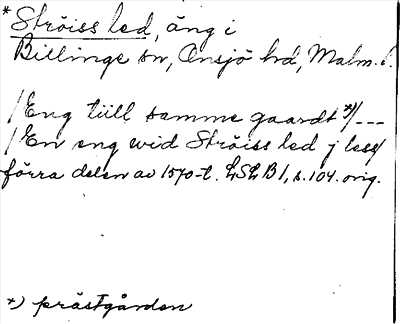 * Ströiss led, äng i
Billinge sn, Onsjö hd, Malm. l.
/Eng tiill samme gaardt *)/---
/En eng wid Ströiss led j less/
förra delen av 1570-t. LSLB 1, s. 104. orig.
*) prästgården